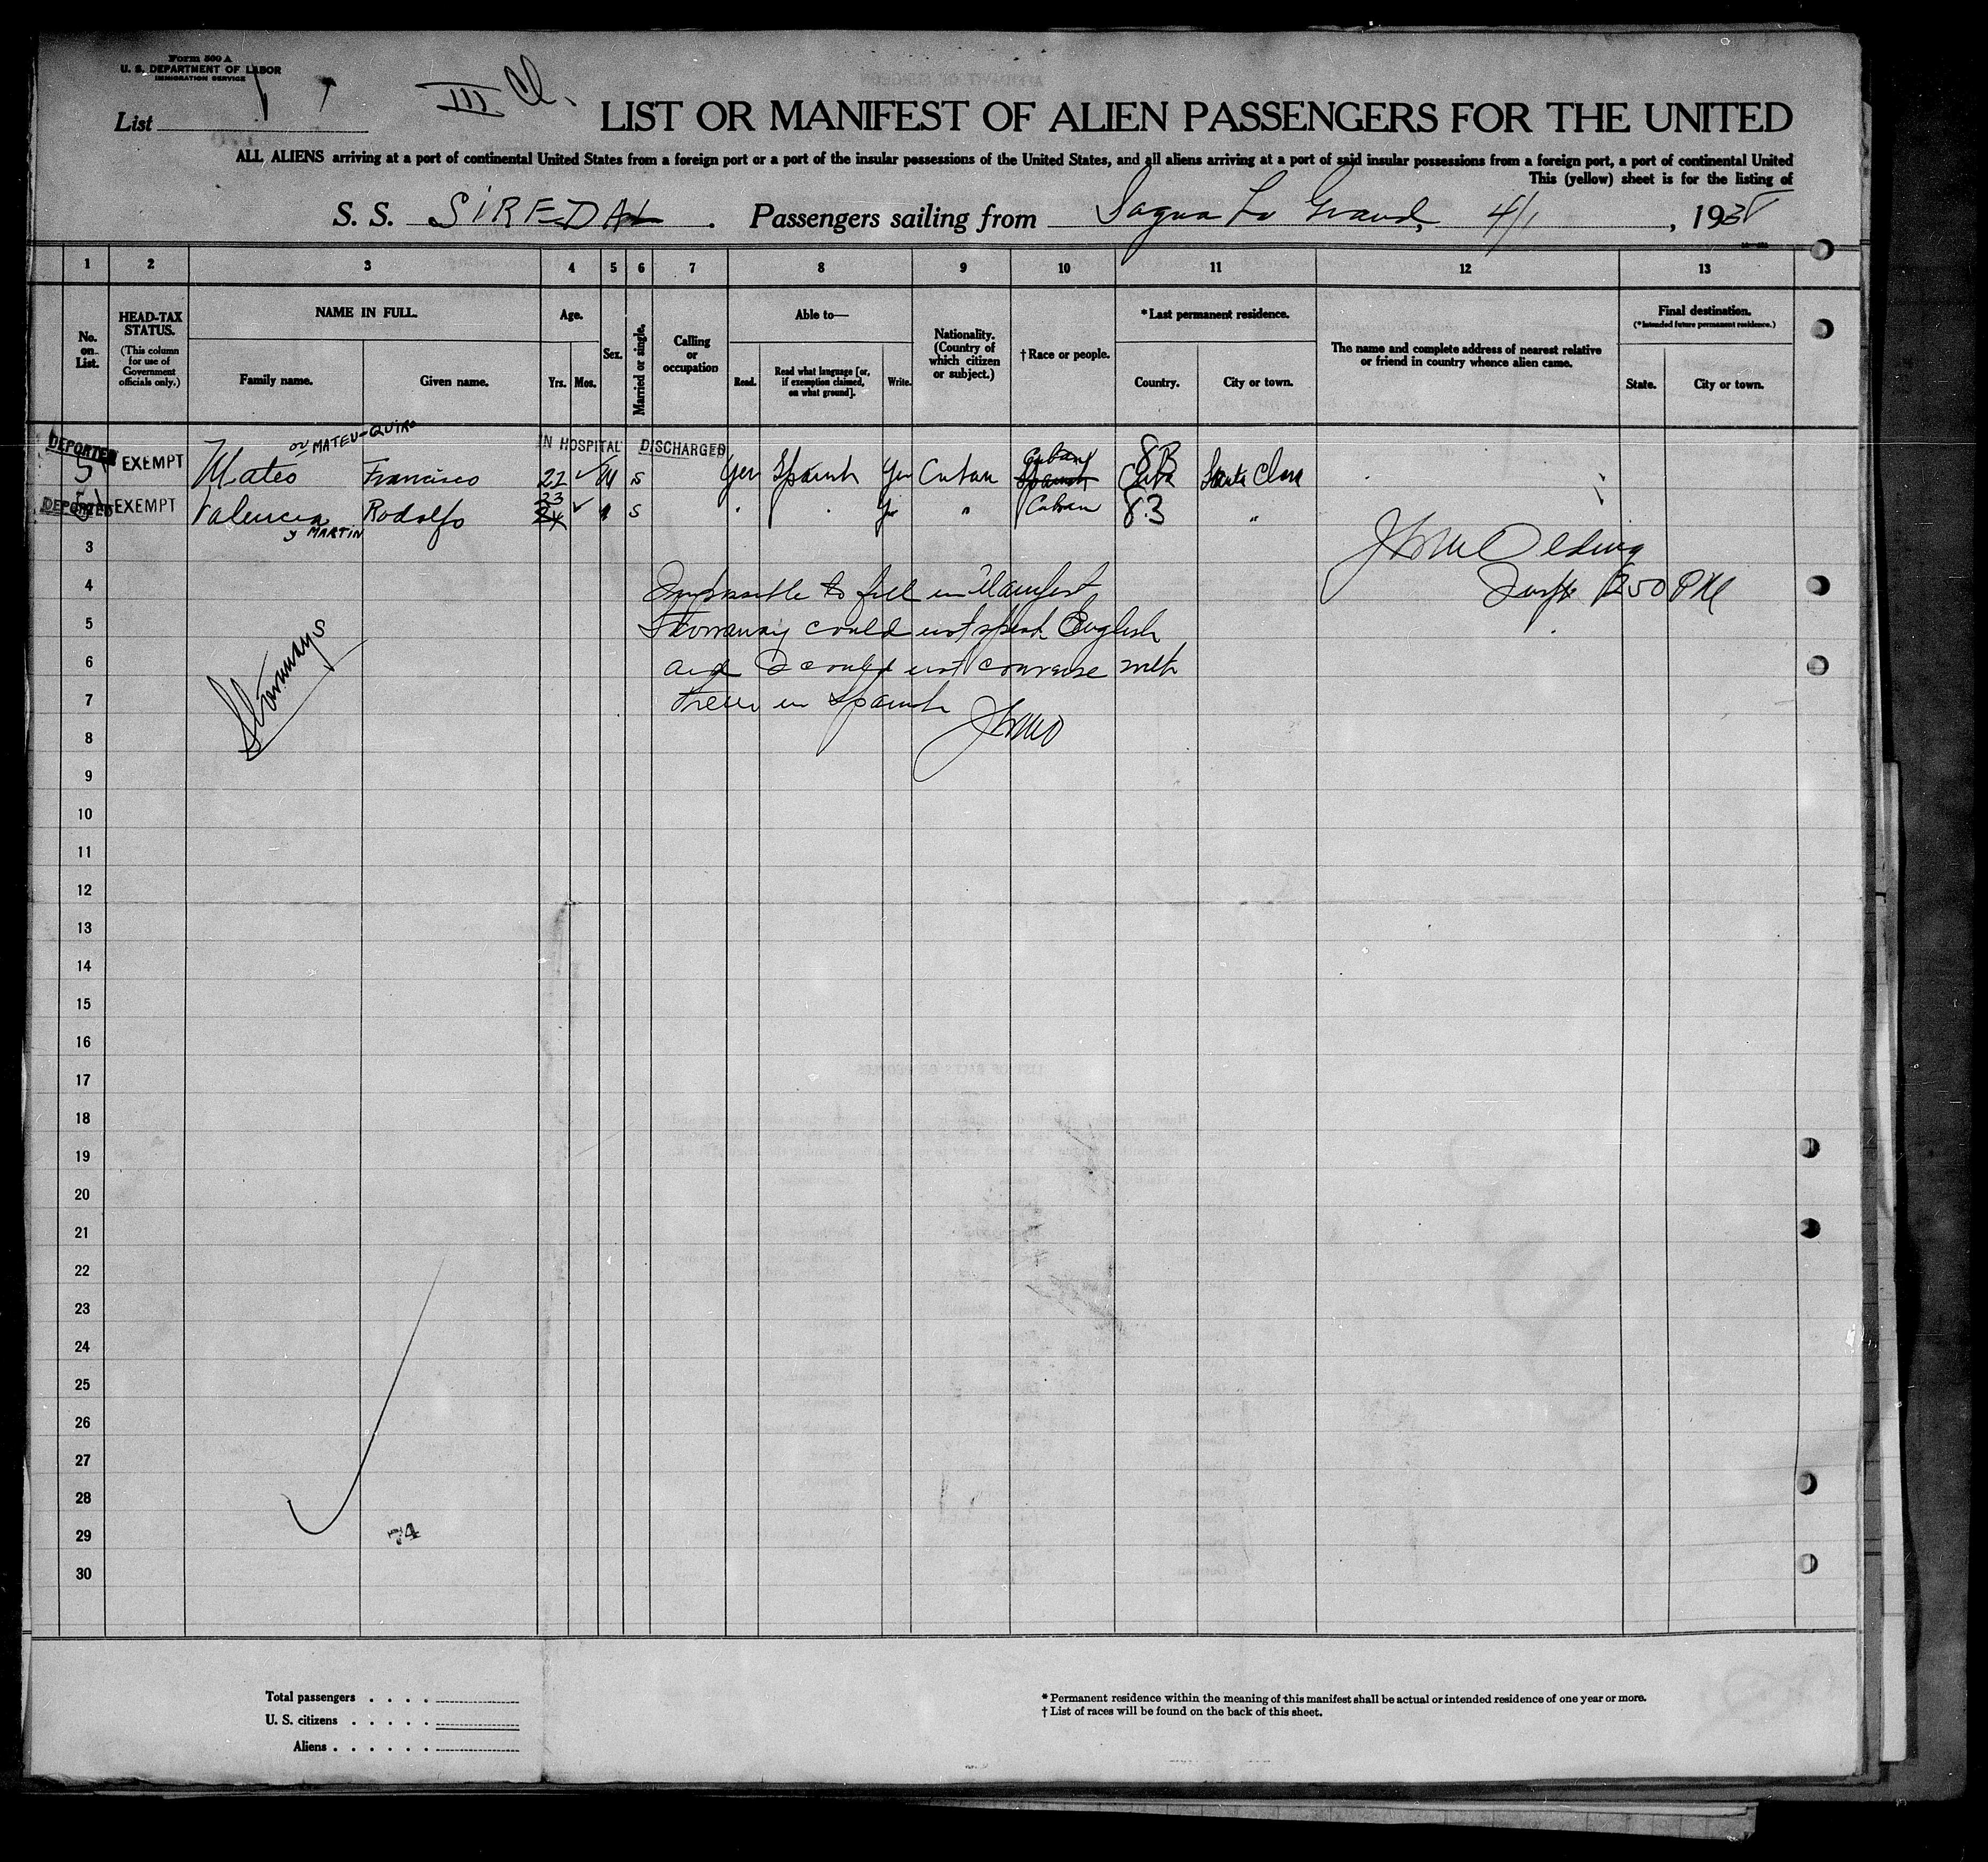 Form 500 A
U. S. DEPARTMENT OF LABOR
IMMIGRATION SERVICE
List
III Cl.
LIST OR MANIFEST OF ALIEN PASSENGERS FOR THE UNITED
ALL ALIENS arriving at a port of continental United States from a foreign port or a port of the insular possessions of the United States, and all aliens arriving at a port of said insular possessions from a foreign port, a port of continental United
This (yellow) sheet is for the listing of
S. S. SIREDAL . Passengers sailing from Sagua La Grand, 4/1 , 193
1 2 3 4 5 6 7 8 9 10 11 12 13
No. on List.
HEAD-TAX STATUS.
(This column for use of Government officials only.)
NAME IN FULL.
Family name. Given name.
Age.
Yrs. Mos.
Sex.
Married or single.
Calling or occupation
Able to—
Read. Read what language [or, if exemption claimed, on what ground]. Write.
Nationality. (Country of which citizen or subject.)
† Race or people.
* Last permanent residence.
Country. City or town.
The name and complete address of nearest relative or friend in country whence alien came.
Final destination.
(* Intended future permanent residence.)
State. City or town.
or MATEU-QUIRO
DEPORTED IN HOSPITAL DISCHARGED Cuban 83
EXEMPT Mateo Francisco 22 ✓ M S Yes Spanish Yes Cuban Spanish Cuba Santa Clara
23
DEPORTED EXEMPT Valencia Rodolfo 24 ✓ S " " Yes " Cuban 83 "
y MARTIN
3
J W M Olding
4
Impossible to fill in Manifest
1250 PM
5
Stowaway could not speak English
6
and I could not converse with
7
them in Spanish
JWMO
Stowaways
8
9
10
11
12
13
14
15
16
17
18
19
20
21
22
23
24
25
26
27
28
29
74
30
Total passengers . . . .
U. S. citizens . . . . .
Aliens . . . . . .
* Permanent residence within the meaning of this manifest shall be actual or intended residence of one year or more.
† List of races will be found on the back of this sheet.